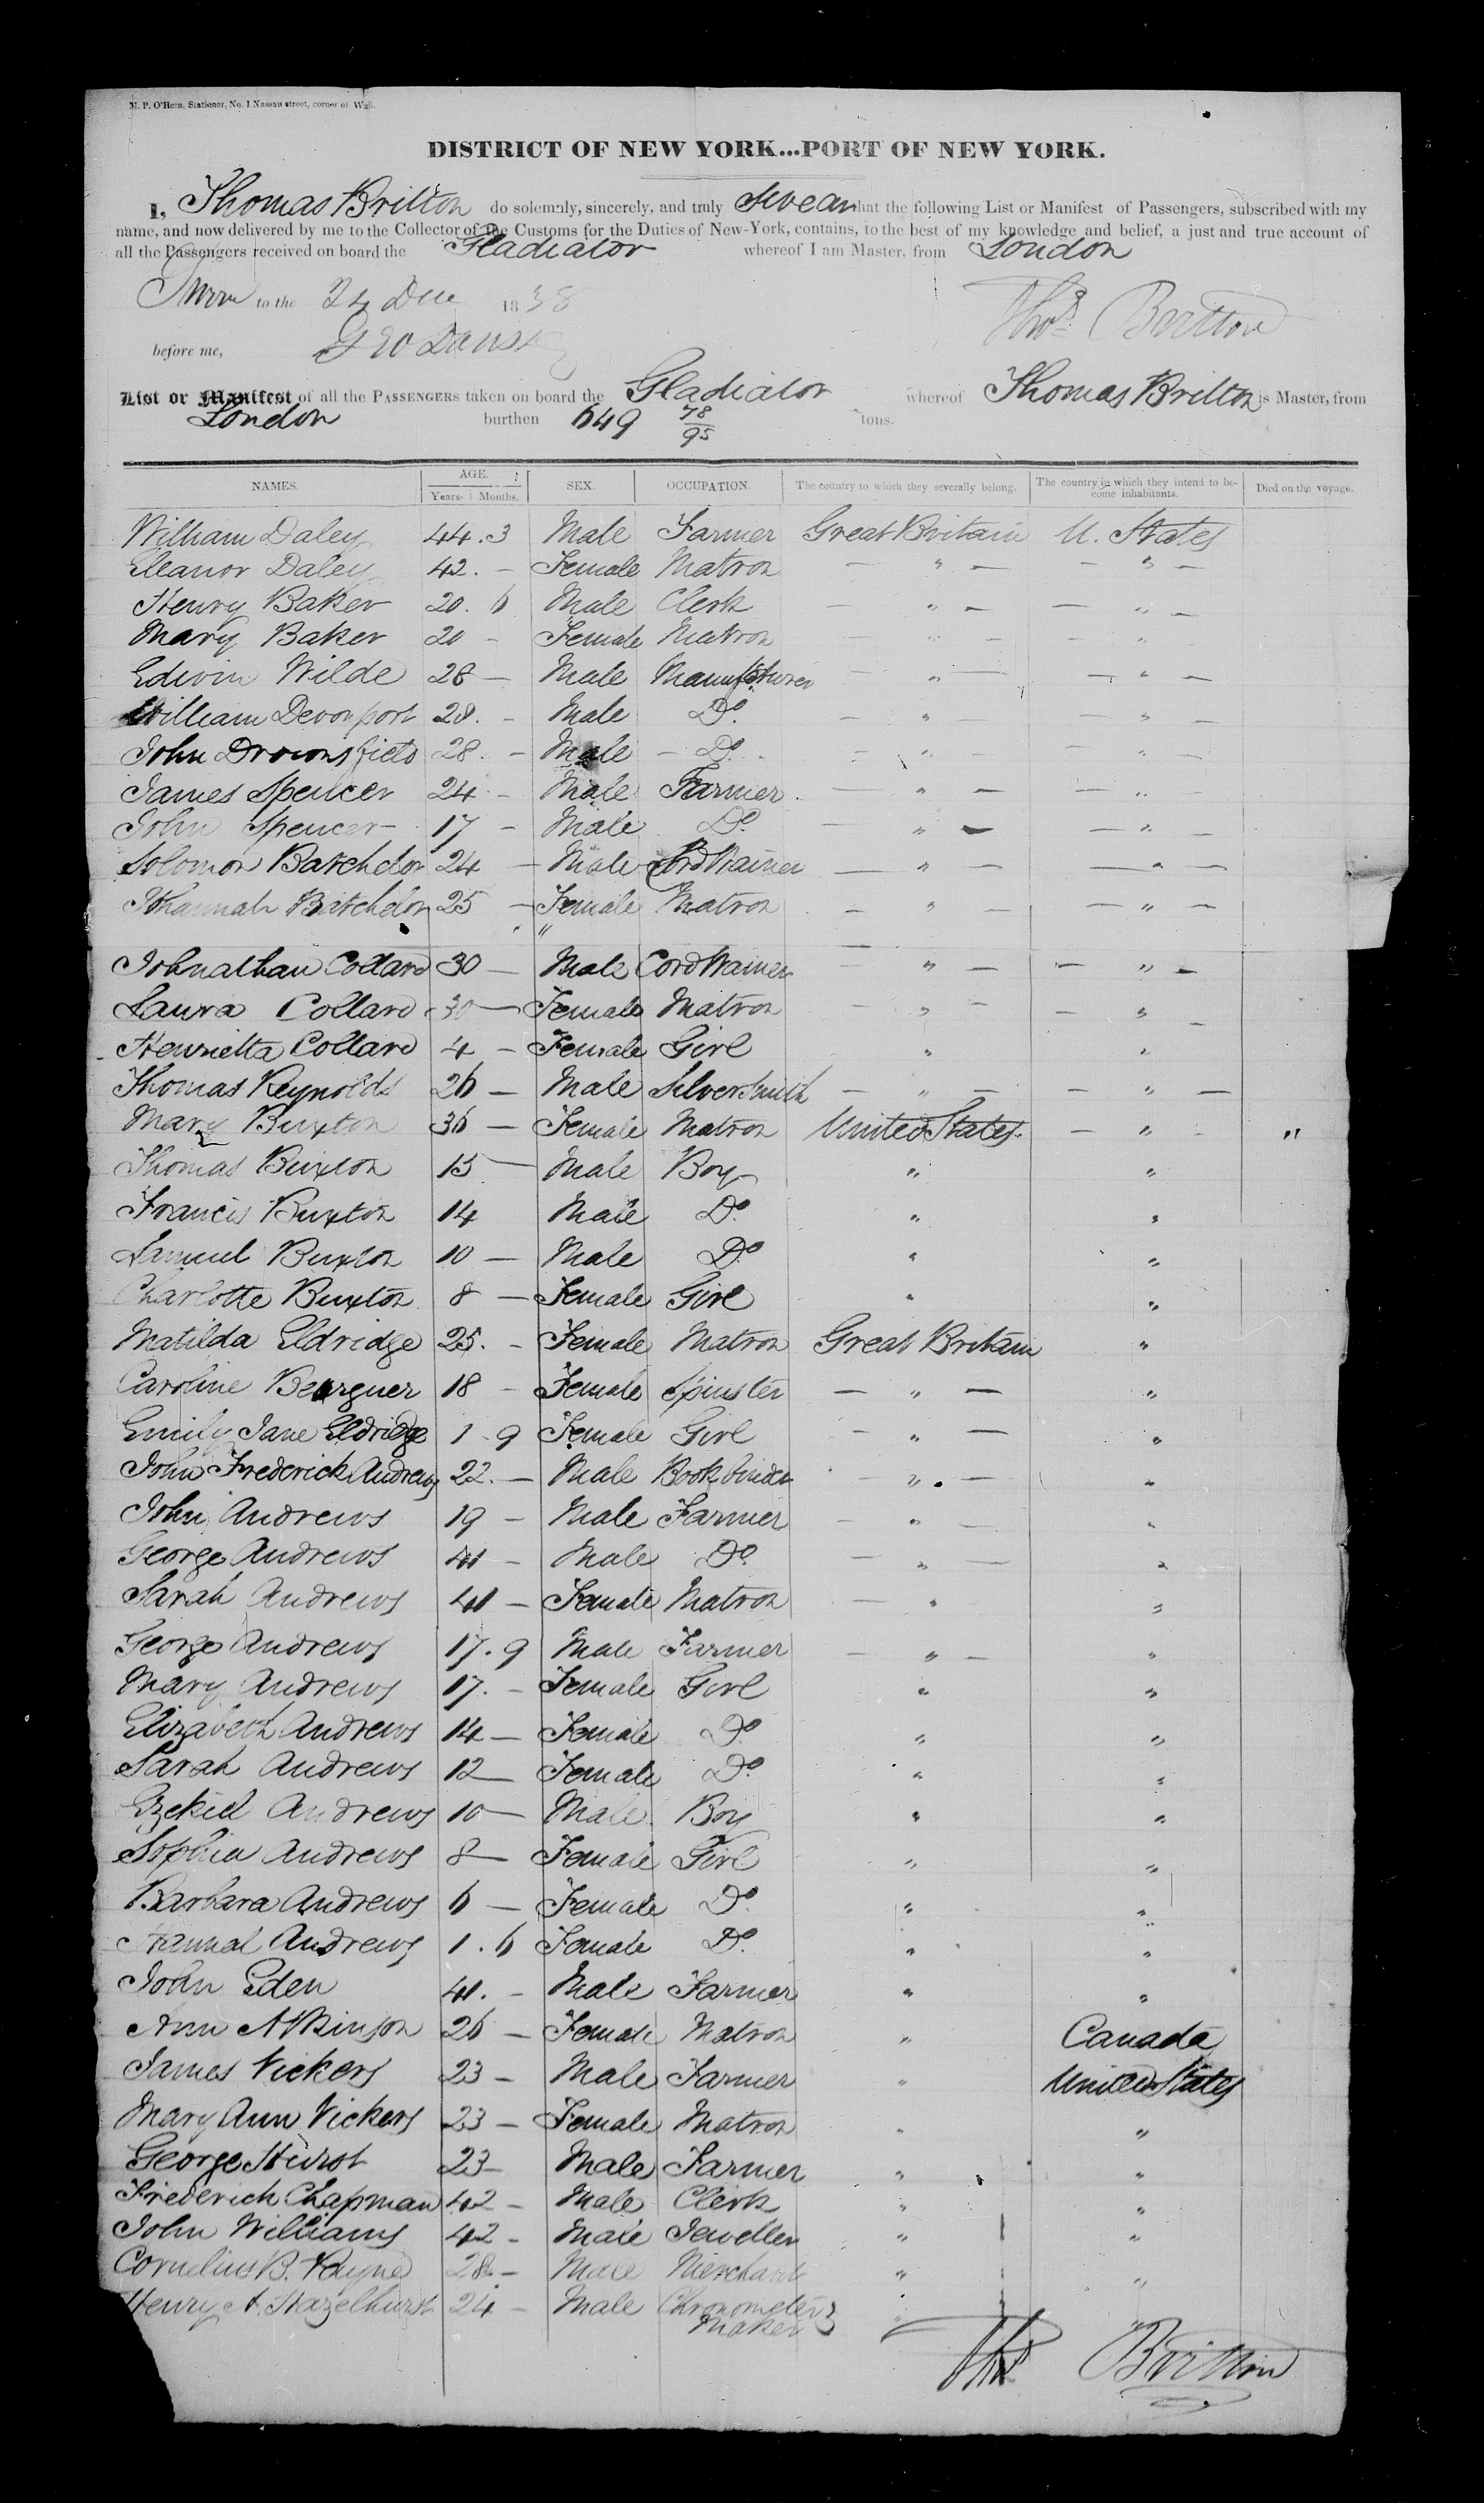 M. P. O'Hern, Stationer, No. 1 Nassau street, corner of Wall.
DISTRICT OF NEW YORK...PORT OF NEW YORK.
I, Thomas Britton do solemnly, sincerely, and truly Swear that the following List or Manifest of Passengers, subscribed with my
name, and now delivered by me to the Collector of the Customs for the Duties of New-York, contains, to the best of my knowledge and belief, a just and true account of
all the Passengers received on board the Gladiator whereof I am Master, from London
Sworn to the 24 Dec 1838 Thos. Britton
before me, Geo
List or Manifest of all the PASSENGERS taken on board the Gladiator whereof Thomas Britton is Master, from
London burthen 649 78/95 tons.
NAMES. AGE. Years. Months. SEX. OCCUPATION. The country to which they severally belong. The country in which they intend to become inhabitants. Died on the voyage.
William Daley 44. 3 Male Farmer Great Britain U. States
Eleanor Daley 42. - Female Matron - " - - " -
Henry Baker 20. 6 Male Clerk - " - - " -
Mary Baker 20 - Female Matron - " - - "
Edwin Wilde 28 - Male Manufacturer - " - - " -
William Devonport 28. - Male Do. - " - - " -
John Drownsfield 28. - Male - Do. - " - - " -
James Spencer 24 - Male Farmer - " - - " -
John Spencer 17 - Male Do. - " - - " -
Solomon Batchelor 24 - Male Cordwainer - " - - " -
Hannah Batchelor 25 - Female Matron - " - - " -
Johnathan Collard 30 - Male Cordwainer - " - - " -
Laura Collard 30 - Female Matron " - - " -
Henrietta Collard 4 - Female Girl " "
Thomas Reynolds 26 - Male Silversmith - " - - " -
Mary Buxton 36 - Female Matron United States - " - "
Thomas Buxton 15 - Male Boy " "
Francis Buxton 14 Male Do. " "
Samuel Buxton 10 - Male Do. " "
Charlotte Buxton 8 - Female Girl " "
Matilda Eldridge 25. - Female Matron Great Britain "
Caroline Bearguer 18 - Female Spinster - " - "
Emily Jane Eldridge 1 - 9 Female Girl - " - "
John Frederick Andrews 22. - Male Book binder - " - "
John Andrews 19 - Male Farmer - " - "
George Andrews 41 - Male Do. - " - "
Sarah Andrews 41 - Female Matron - " "
George Andrews 17. 9 Male Farmer - " - "
Mary Andrews 17. - Female Girl " "
Elizabeth Andrews 14 - Female Do. " "
Sarah Andrews 12 - Female Do. " "
Ezekiel Andrews 10 - Male Boy " "
Sophia Andrews 8 - Female Girl " "
Barbara Andrews 6 - Female Do. " "
Hannah Andrews 1. 6 Female Do. " "
John Eden 41. - Male Farmer " "
Ann Atkinson 26 - Female Matron " Canada
James Vickers 23 - Male Farmer " United States
Mary Ann Vickers 23 - Female Matron " "
George Hurst 23 - Male Farmer " "
Frederick Chapman 42 - Male Clerk " "
John Williams 42 - Male Jeweller " "
Cornelius B. Payne 28 - Male Merchant " "
Henry A. Hazelhurst 24 - Male Chronometer " "
Maker
Thos. Britton